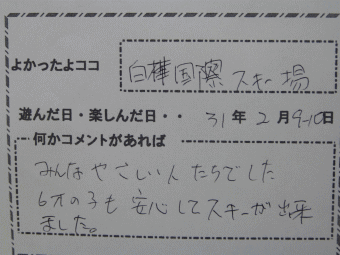 よかったよココ 白樺国際スキー場
遊んだ日・楽しんだ日・・ 31年2月9-10日
何かコメントがあれば
みんなやさしい人たちでした
6才の子も安心してスキーが出来
ました。